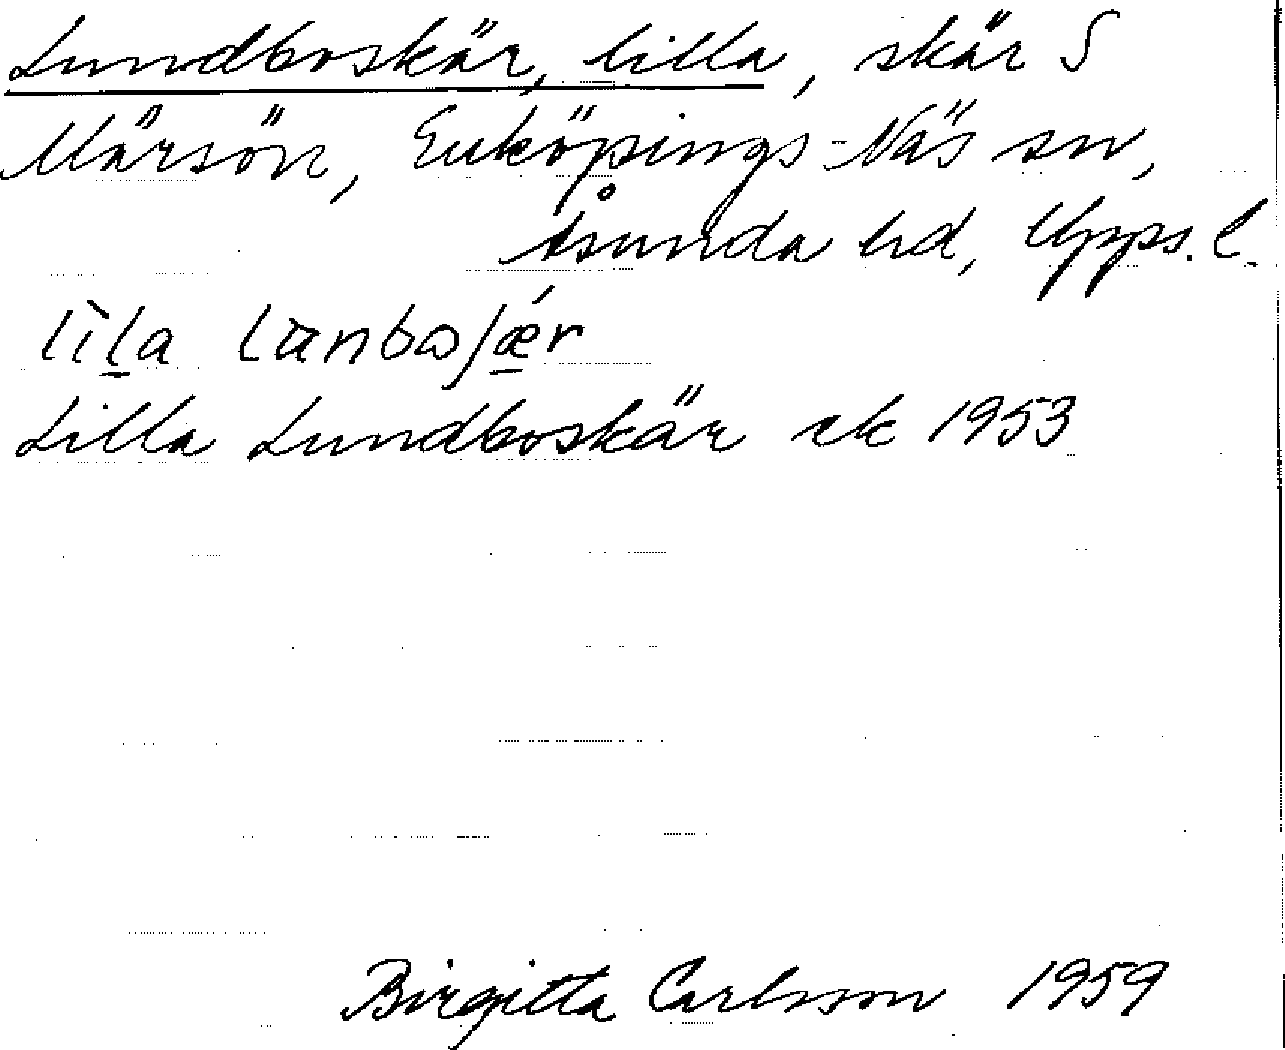 Lundboskär, lilla, skär S
Märsön, Enköpings-Näs sn,
Åsunda hd, Upps. l.
Lilla Lundboskär ek 1953
Birgitta Carlsson 1959